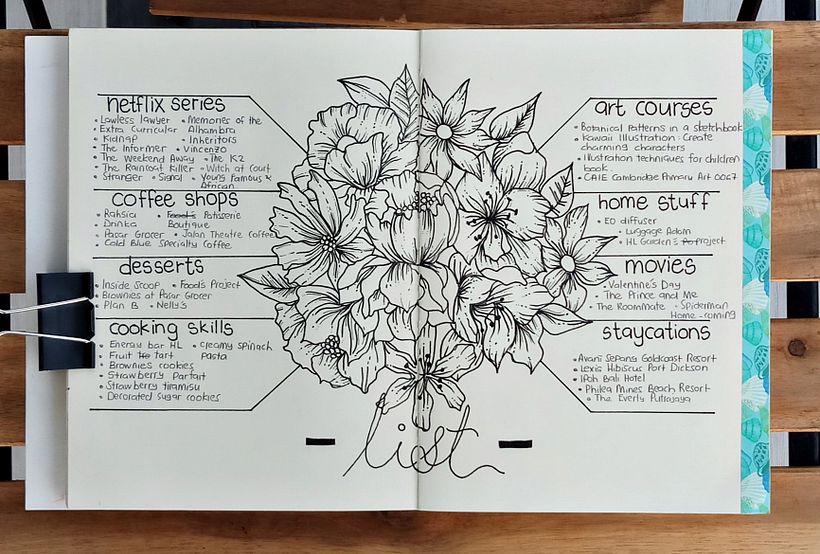 netflix series
• Lawless lawyer • Memories of the
• Extra Curricular Alhambra
• Kidnap • Inheritors
• The Informer • Vincenzo
• The Weekend Away • The K2
• The Raincoat Killer • Witch at Court
• Stranger • Signal • Young Famous &
African
coffee shops
• Rahsia • Food's Patisserie
• Drinka Boutique
• Pasar Grocer • Jalan Theatre Coffee
• Cold Blue Specialty Coffee
desserts
• Inside Scoop • Food's Project
• Brownies at Pasar Grocer
• Plan B • Nelly's
cooking skills
• Energy bar HL • creamy spinach
• Fruit tart pasta
• Brownies cookies
• Strawberry Parfait
• Strawberry tiramisu
• Decorated sugar cookies
art courses
• Botanical Patterns in a sketchbook
• Kawaii Illustration: Create
charming characters
• Illustration techniques for children
book.
• CAIE Cambridge Primary Art 0067
home stuff
• EO diffuser
• Luggage Adam
• HL Garden's project
movies
• Valentine's Day
• The Prince and Me
• The Roommate • Spiderman
Home-coming
staycations
• Avani Sepang Goldcoast Resort
• Lexis Hibiscus Port Dickson
• Ipoh Bali Hotel
• Philea Mines Beach Resort
• The Everly Putrajaya
list